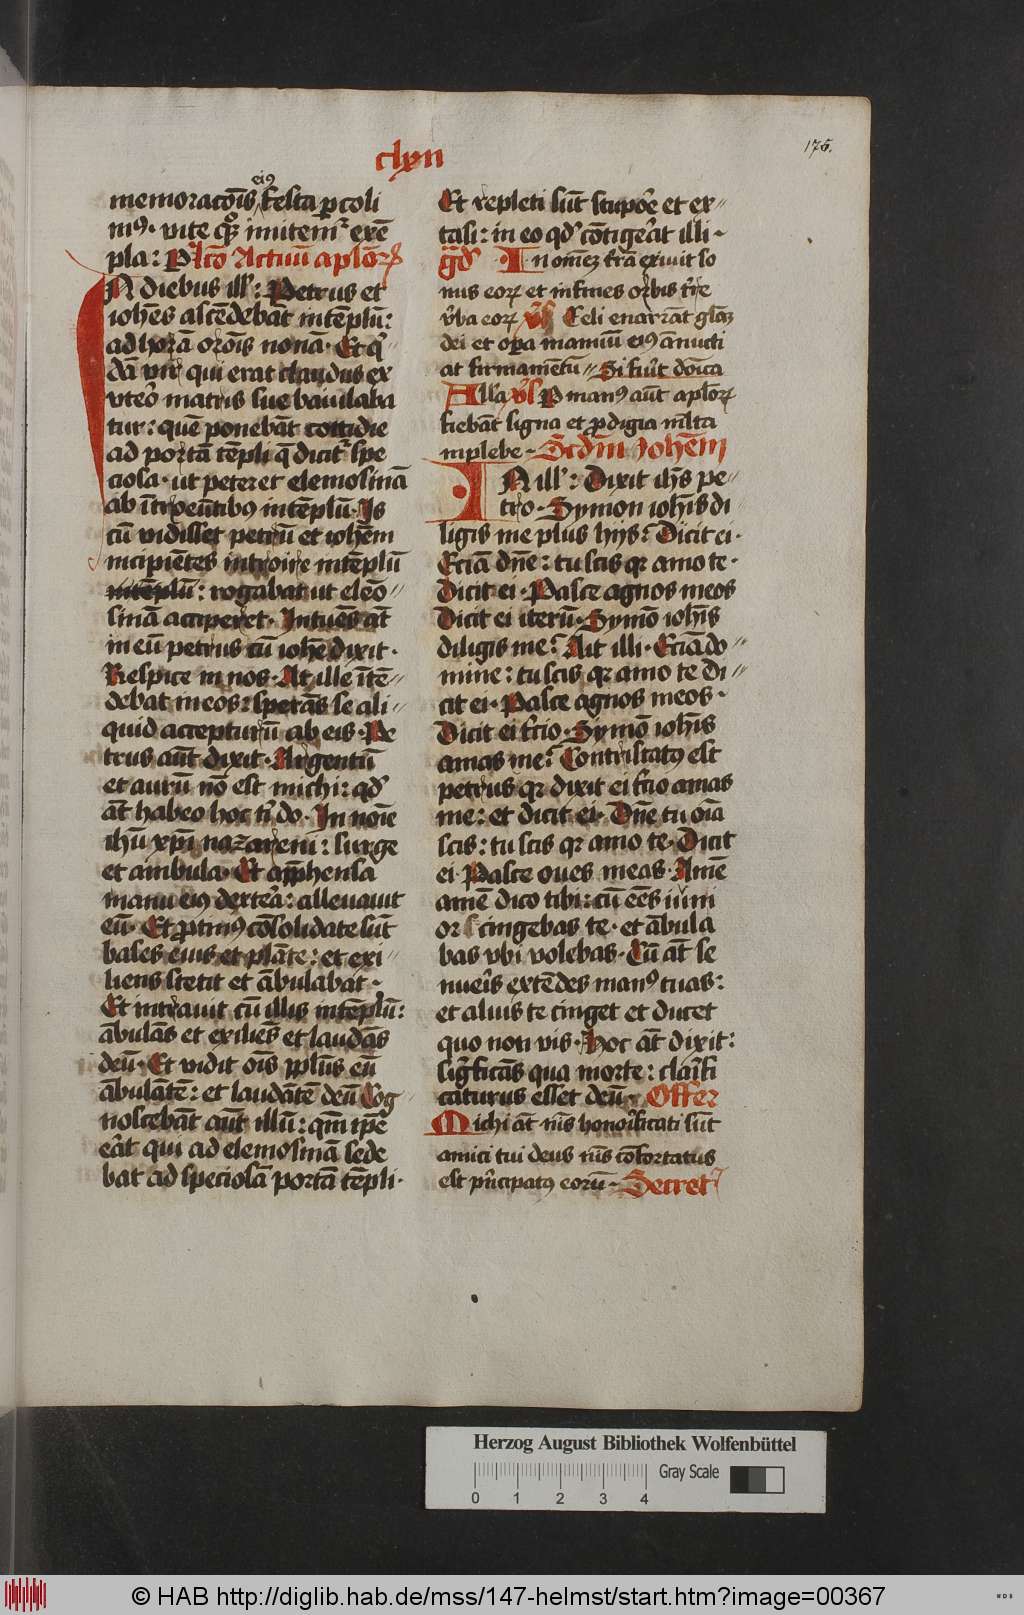 clxii
175.
eiꝰ
memoracōis festa ꝑcoli
mꝰ· vite qꝫ imitemͬ exē
pla: Lc̄o Actuū aplōꝝ
IN diebus ill': Petrus et
iohēs ascēdebāt intēplū:
ad horā orōis nonā· Et q'
dā vir qui erat claudus ex
vteͦ matris sue baiulaba
tur: quē ponebāt cottidie
ad portā tēpli q̄ dicitͬ spe
ciosa· ut peteret elemosinā
ab ītroeūtibꝰ intēplū· Is
cū vidisset petrū et iohēm
incipiētes introire intēplū
intēplū: rogabat ut eleō〃
sinā acciperet· Intuēs āt
in eū petrus cū iohē dixit·
Respice in nos· At ille ītē〃
debat in eos: sperās se ali〃
quid accepturū ab eis· Pe
trus aūt dixit· Argentū
et aurū nō est michi: qd'
āt habeo hoc t' do· In noīe
ihū xp̄i nazareni: surge
et ambula· Et app̄hensa
manu eiꝰ dext'a: alleuauit
eū· Et ꝓtinꝰ cōsolidate sūt
bases eius et plāte: et exi〃
liens stetit et ābulabat·
Et intrauit cū illis intēplū:
ābulās et exiliēs et laudās
deū· Et vidit oīs ppl̄us eū
ābulātē: et laudātē deū Cog
noscebāt aūt illū: qm̄ ip̄e
eāt qui ad elemosinā sede
bat ad speciosā portā tēpli·
Et repleti sūt stupoͤe et ex〃
tasi: in eo qd' cōtigeāt illi·
gͣd' In omēꝫ t'rā exiuit so
nus eoꝝ et in fines orbis t're
v'ba eoꝝ v̄s Celi enarrāt glāꝫ
dei et oꝑa manuū eiꝰ ānucti
at firmamētū〃 Si fu'it dōica
All'a v̄s P manꝰ aūt aplōꝝ
fiebāt signa et ꝓdigia ml̄ta
inplebe· Scd̄m Johēm
IN ill': Dixit ih̄s pe〃
tro· Symon ioh̄is di
ligis me plus hijs? Dicit ei·
Eciā dn̄e: tu scis qꝛ amo te·
Dicit ei· Pasce agnos meos
Dicit ei iterū· Symō ioh̄is
diligis me? Ait illi· Eciā do〃
mine: tu scis qꝛ amo te Di〃
cit ei· Pasce agnos meos·
Dicit ei t'cio· Symō ioh̄is
amas me? Contristatꝰ est
petrus qꝛ dixit ei t'cio amas
me: et dicit ei· Dn̄e tu oīa
scis: tu scis qꝛ amo te· Dicit
ei· Pasce oues meas· Amē
amē dico tibi: cū eēs iuni
or cingebas te· et ābula
bas vbi volebas· Cū āt se
nueis extēdes manꝰ tuas:
et alius te cinget et ducet
quo non vis· Hoc āt dixit:
siḡficās qua morte: clāifi
caturus esset deū· Offer
Michi āt nīs honoīficati sūt
amici tui deus nīs cōfortatus
est pͥncipatꝰ eorū· Secretͣ
Herzog August Bibliothek Wolfenbüttel
Gray Scale
0 1 2 3 4
© HAB http://diglib.hab.de/mss/147-helmst/start.htm?image=00367